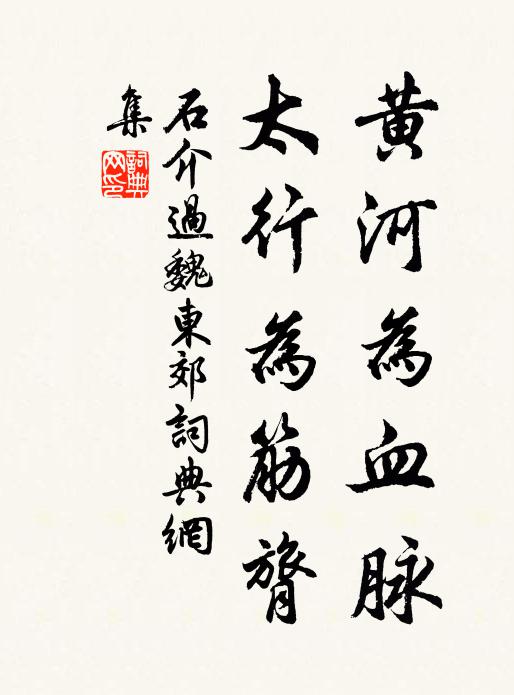 黃河為血脉
太行為筋膂
石介過魏東郊詞典網
集
詞典
网印